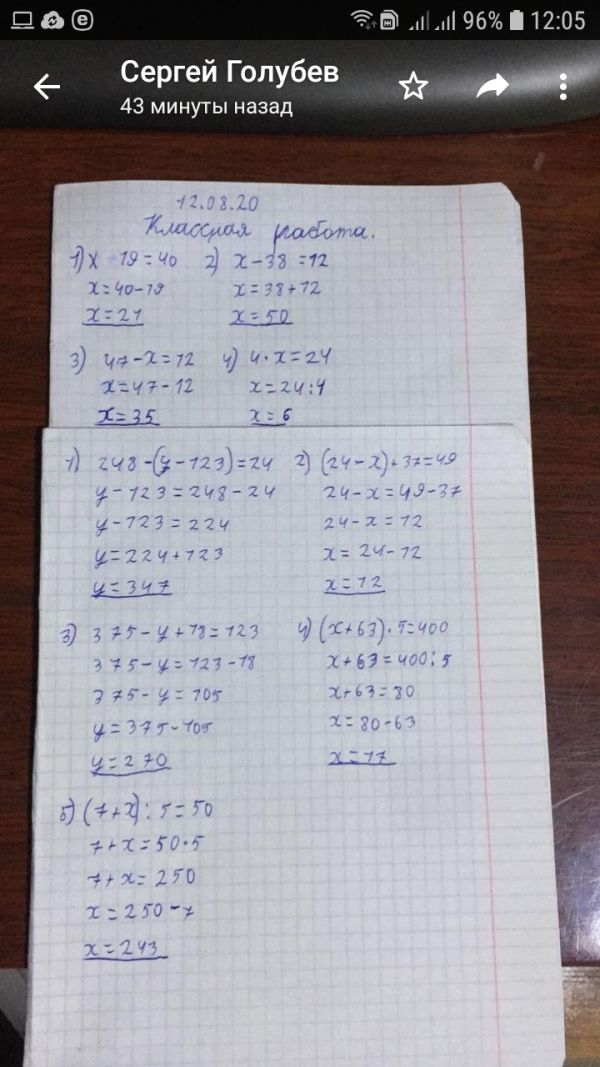 96% 12:05
Сергей Голубев
43 минуты назад
12.08.20
Классная работа.
1) x +19=40
x=40-19
x=21
2) x-38=12
x=38+12
x=50
3) 47-x=12
x=47-12
x=35
4) 4·x=24
x=24:4
x=6
1) 248-(y-123)=24
y-123=248-24
y-123=224
y=224+123
y=347
2) (24-x)+37=49
24-x=49-37
24-x=12
x=24-12
x=12
3) 375-y+18=123
375-y=123-18
375-y=105
y=375-105
y=270
4) (x+63)·5=400
x+63=400:5
x+63=80
x=80-63
x=17
5) (7+x):5=50
7+x=50·5
7+x=250
x=250-7
x=243